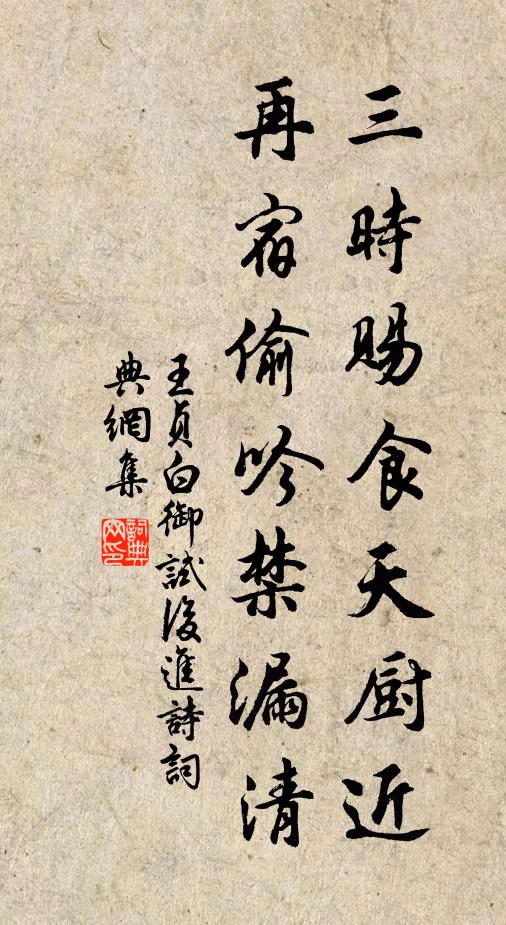 三時賜食天厨近
再宿偷吟禁漏清
王貞白御試後進詩詞
典網集
詞典
网印